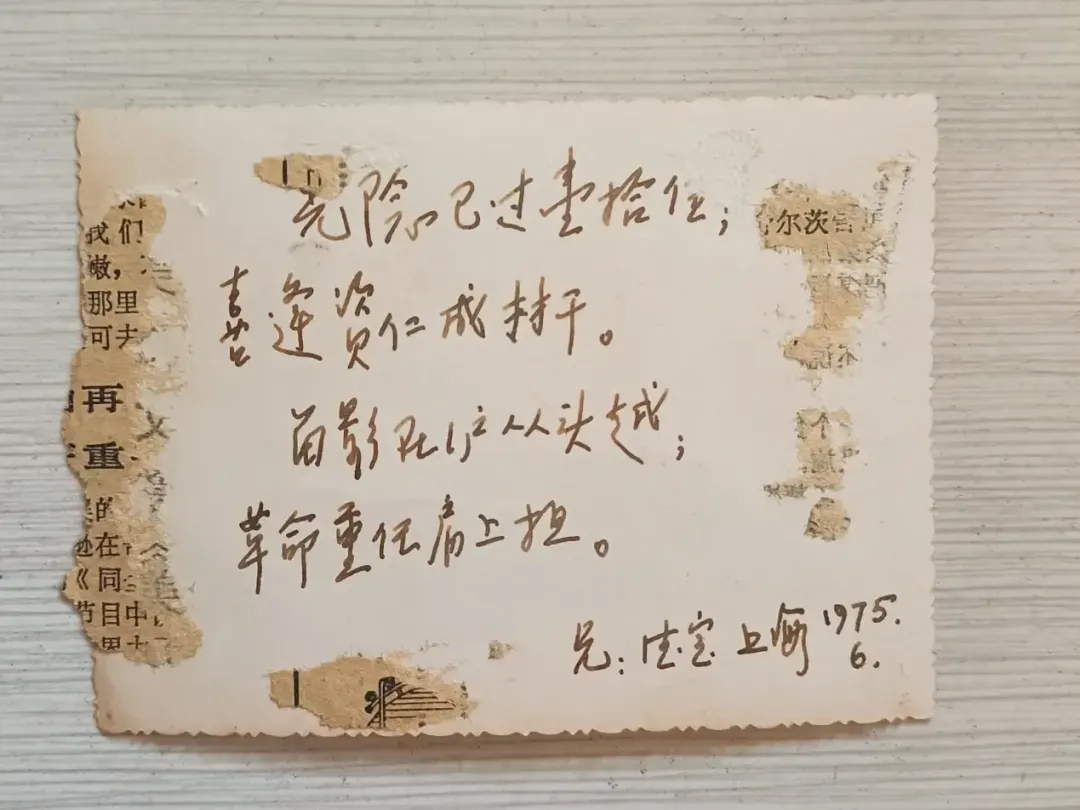 光陰已过壹拾伍;
喜逢贤仁成材干。
留影在沪从头越;
革命重任肩上担。
兄: 宝 上海 1975.
6.
我们
嫩,
那里
可去
再
重
的
在
《同
节目中
尔茨宫
个